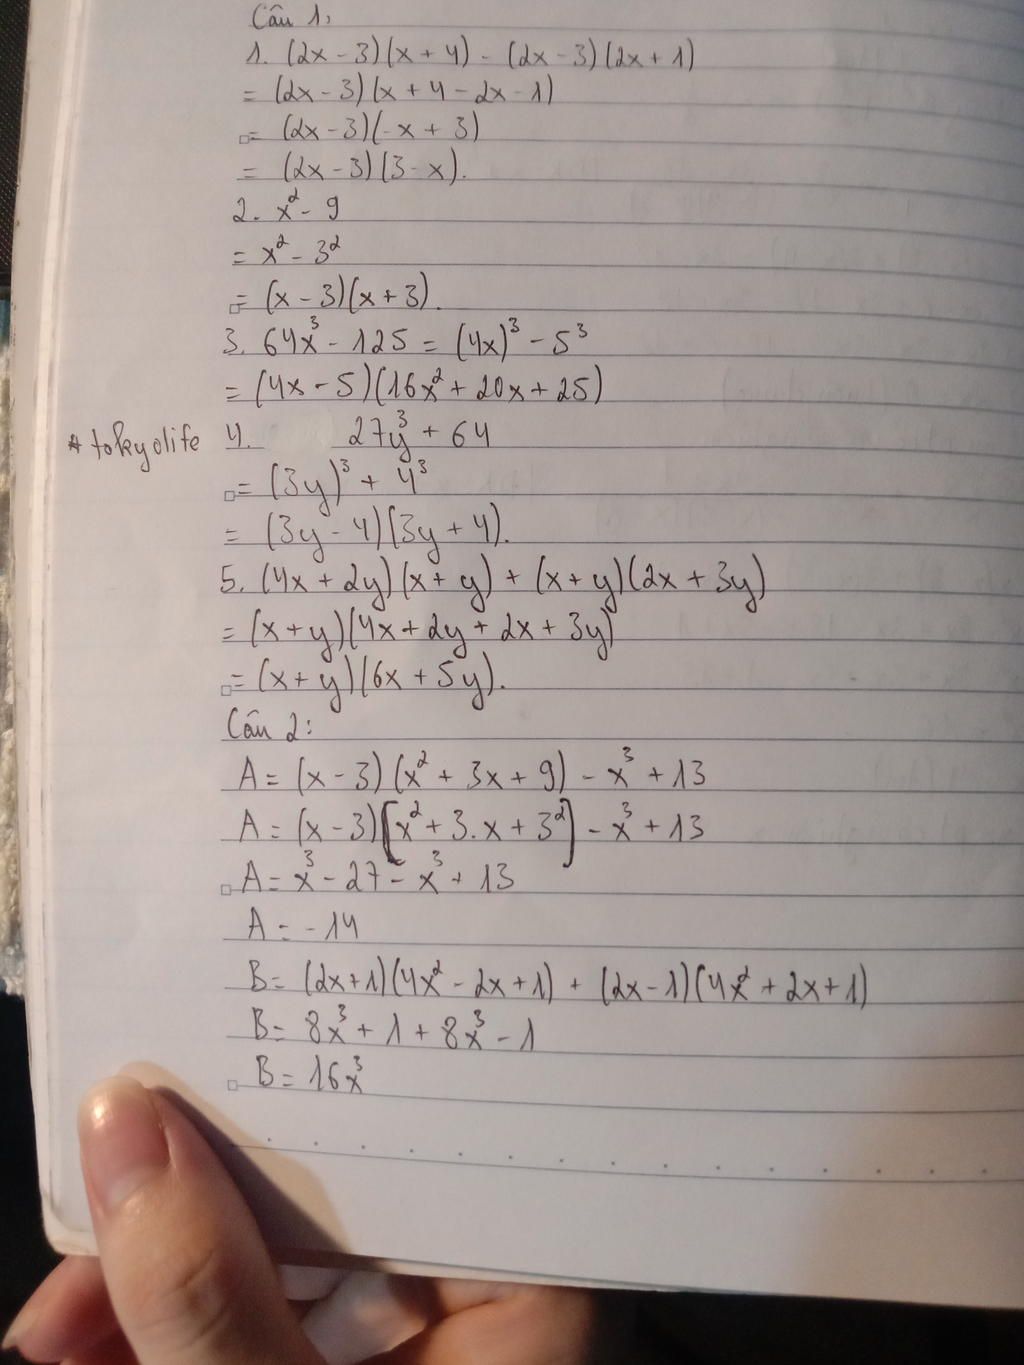 Câu 1:
1. (2x - 3)(x + 4) - (2x - 3)(2x + 1)
= (2x - 3)(x + 4 - 2x - 1)
= (2x - 3)(-x + 3)
= (2x - 3)(3 - x).
2. x² - 9
= x² - 3²
= (x - 3)(x + 3).
3. 64x³ - 125 = (4x)³ - 5³
= (4x - 5)(16x² + 20x + 25)
* tokyolife 4. 27y³ + 64
= (3y)³ + 4³
= (3y - 4)(3y + 4).
5. (4x + 2y)(x + y) + (x + y)(2x + 3y)
= (x + y)(4x + 2y + 2x + 3y)
= (x + y)(6x + 5y).
Câu 2:
A = (x - 3)(x² + 3x + 9) - x³ + 13
A = (x - 3)[x² + 3.x + 3²] - x³ + 13
A = x³ - 27 - x³ + 13
A = -14
B = (2x + 1)(4x² - 2x + 1) + (2x - 1)(4x² + 2x + 1)
B = 8x³ + 1 + 8x³ - 1
B = 16x³